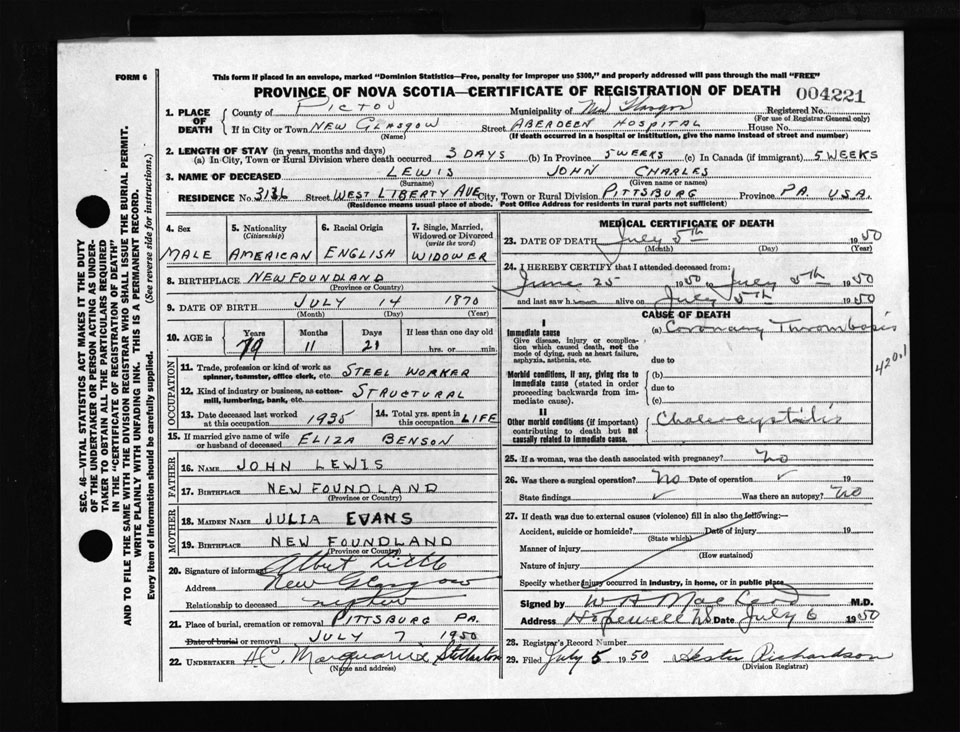 FORM 6
This form if placed in an envelope, marked "Dominion Statistics—Free, penalty for improper use $300," and properly addressed will pass through the mail "FREE"
PROVINCE OF NOVA SCOTIA—CERTIFICATE OF REGISTRATION OF DEATH 004221
1. PLACE OF DEATH
County of PICTOU Municipality of New Glasgow Registered No.
(For use of Registrar General only)
If in City or Town NEW GLASGOW Street ABERDEEN HOSPITAL House No.
(Name) (If death occurred in a hospital or institution, give the name instead of street and number)
2. LENGTH OF STAY (in years, months and days)
(a) In City, Town or Rural Division where death occurred 3 DAYS (b) In Province 5 WEEKS (c) In Canada (if immigrant) 5 WEEKS
3. NAME OF DECEASED LEWIS JOHN CHARLES
(Surname) (Given name or names)
RESIDENCE No. Street WEST LIBERTY AVE City, Town or Rural Division PITTSBURG Province PA. U.S.A.
(Residence means usual place of abode. Post Office Address for residents in rural parts not sufficient)
4. Sex
MALE
5. Nationality
(Citizenship)
AMERICAN
6. Racial Origin
ENGLISH
7. Single, Married,
Widowed or Divorced
(write the word)
WIDOWER
8. BIRTHPLACE NEWFOUNDLAND
(Province or Country)
9. DATE OF BIRTH JULY 14 1870
(Month) (Day) (Year)
10. AGE in Years Months Days If less than one day old
79 11 21 hrs. or min.
OCCUPATION
11. Trade, profession or kind of work as
spinner, teamster, office clerk, etc. STEEL WORKER
12. Kind of industry or business, as cotton-
mill, lumbering, bank, etc. STRUCTURAL
13. Date deceased last worked
at this occupation 1935
14. Total yrs. spent in
this occupation LIFE
15. If married give name of wife
or husband of deceased ELIZA BENSON
FATHER
16. NAME JOHN LEWIS
17. BIRTHPLACE NEWFOUNDLAND
(Province or Country)
MOTHER
18. MAIDEN NAME JULIA EVANS
19. BIRTHPLACE NEW FOUNDLAND
(Province or Country)
20. Signature of informant Albert Little
Address New Glasgow
Relationship to deceased nephew
21. Place of burial, cremation or removal PITTSBURG PA.
Date of burial or removal JULY 7 1950
22. UNDERTAKER Stellarton
(Name and address)
MEDICAL CERTIFICATE OF DEATH
23. DATE OF DEATH July 5th 1950
(Month) (Day) (Year)
24. I HEREBY CERTIFY that I attended deceased from:
June 25 1950 to July 5th 1950
and last saw him alive on July 5th 1950
CAUSE OF DEATH
I
Immediate cause (a) Coronary Thrombosis
Give disease, injury or complica-
tion which caused death, not the
mode of dying, such as heart failure,
asphyxia, asthenia, etc.
due to
Morbid conditions, if any, giving rise to
immediate cause (stated in order
proceeding backwards from
immediate cause).
(b)
due to
(c)
420.1
II
Other morbid conditions (if important)
contributing to death but not
causally related to immediate cause.
Cholecystitis
25. If a woman, was the death associated with pregnancy? No
26. Was there a surgical operation? No Date of operation
State findings Was there an autopsy? No
27. If death was due to external causes (violence) fill in also the following:—
Accident, suicide or homicide? Date of injury 19
(State which)
Manner of injury
(How sustained)
Nature of injury
Specify whether injury occurred in industry, in home, or in public place
Signed by M.D.
Address Hopewell NS Date July 6 1950
28. Registrar's Record Number
29. Filed July 5 1950 Hester Richardson
(Division Registrar)
SEC. 46—VITAL STATISTICS ACT MAKES IT THE DUTY
OF THE UNDERTAKER OR PERSON ACTING AS UNDER-
TAKER TO OBTAIN ALL THE PARTICULARS REQUIRED
IN THE "CERTIFICATE OF REGISTRATION OF DEATH"
AND TO FILE THE SAME WITH THE DIVISION REGISTRAR WHO SHALL ISSUE THE BURIAL PERMIT.
WRITE PLAINLY WITH UNFADING INK. THIS IS A PERMANENT RECORD.
Every item of information should be carefully supplied. (See reverse side for instructions.)